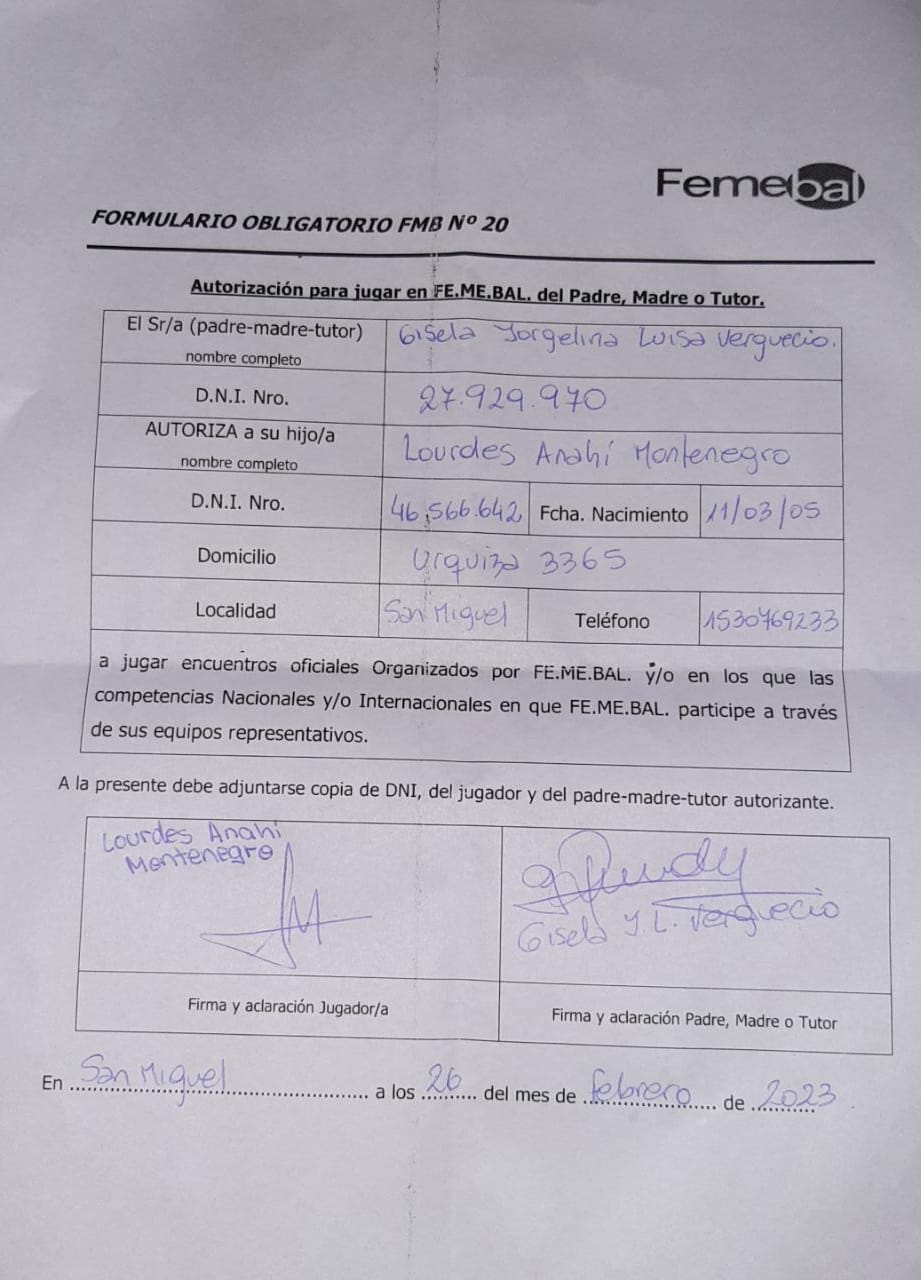 Femebal
FORMULARIO OBLIGATORIO FMB Nº 20
Autorización para jugar en FE.ME.BAL. del Padre, Madre o Tutor.
El Sr/a (padre-madre-tutor)
nombre completo
Gisela Jorgelina Luisa Verguecio.
D.N.I. Nro.
27.929.970
AUTORIZA a su hijo/a
nombre completo
Lourdes Anahí Montenegro
D.N.I. Nro.
46,566.642
Fcha. Nacimiento
11/03/05
Domicilio
Urquiza 3365
Localidad
San Miguel
Teléfono
1530769233
a jugar encuentros oficiales Organizados por FE.ME.BAL. y/o en los que las
competencias Nacionales y/o Internacionales en que FE.ME.BAL. participe a través
de sus equipos representativos.
A la presente debe adjuntarse copia de DNI, del jugador y del padre-madre-tutor autorizante.
Lourdes Anahi
Montenegro
Gisela J. L. Verguecio
Firma y aclaración Jugador/a
Firma y aclaración Padre, Madre o Tutor
En San Miguel a los 26 del mes de febrero de 2023